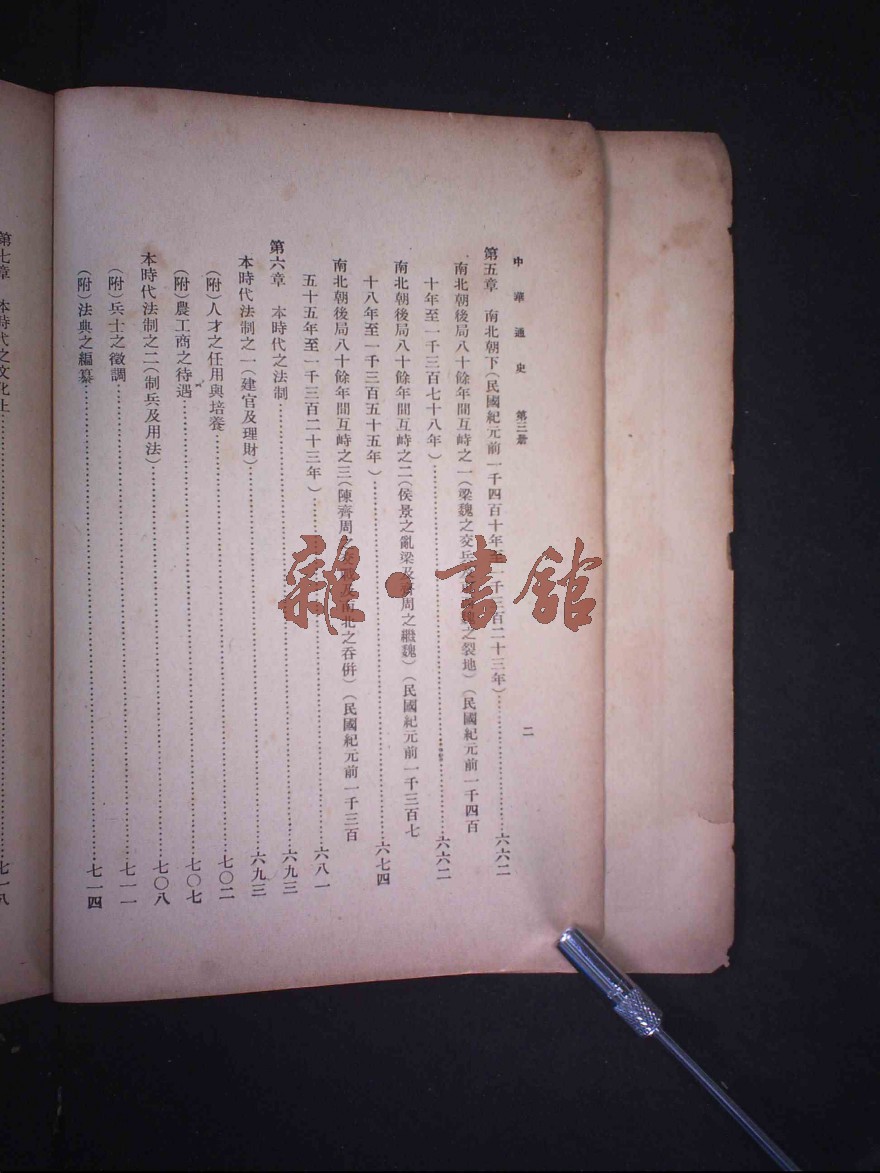 中華通史 第三册
二
第五章 南北朝下(民國紀元前一千四百十年至一千三百二十三年)……六六二
南北朝後局八十餘年間互峙之一(梁魏之交兵之裂地)(民國紀元前一千四百
十年至一千三百七十八年)……六六二
南北朝後局八十餘年間互峙之二(侯景之亂梁及齊周之繼魏)(民國紀元前一千三百七
十八年至一千三百五十五年)……六七四
南北朝後局八十餘年間互峙之三(陳齊周之及南北之吞併)(民國紀元前一千三百
五十五年至一千三百二十三年)……六八一
第六章 本時代之法制……六九三
本時代法制之一(建官及理財)……六九三
(附)人才之任用與培養……七〇二
(附)農工商之待遇……七〇七
本時代法制之二(制兵及用法)……七〇八
(附)兵士之徵調……七一一
(附)法典之編纂……七一四
第七章 本時代之文化上……七一八
雜·書館